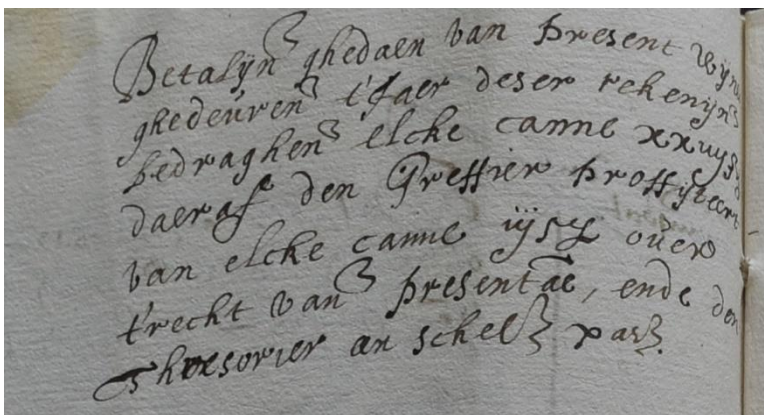 Betalijn ghedaen van present wijn
ghedeuren t'Jaer deser rekenijn
bedraghen elcke canne
daeraf den Greffier proffijteert
van elcke canne iij ouer
t'recht van presentae, ende den
thresorier an